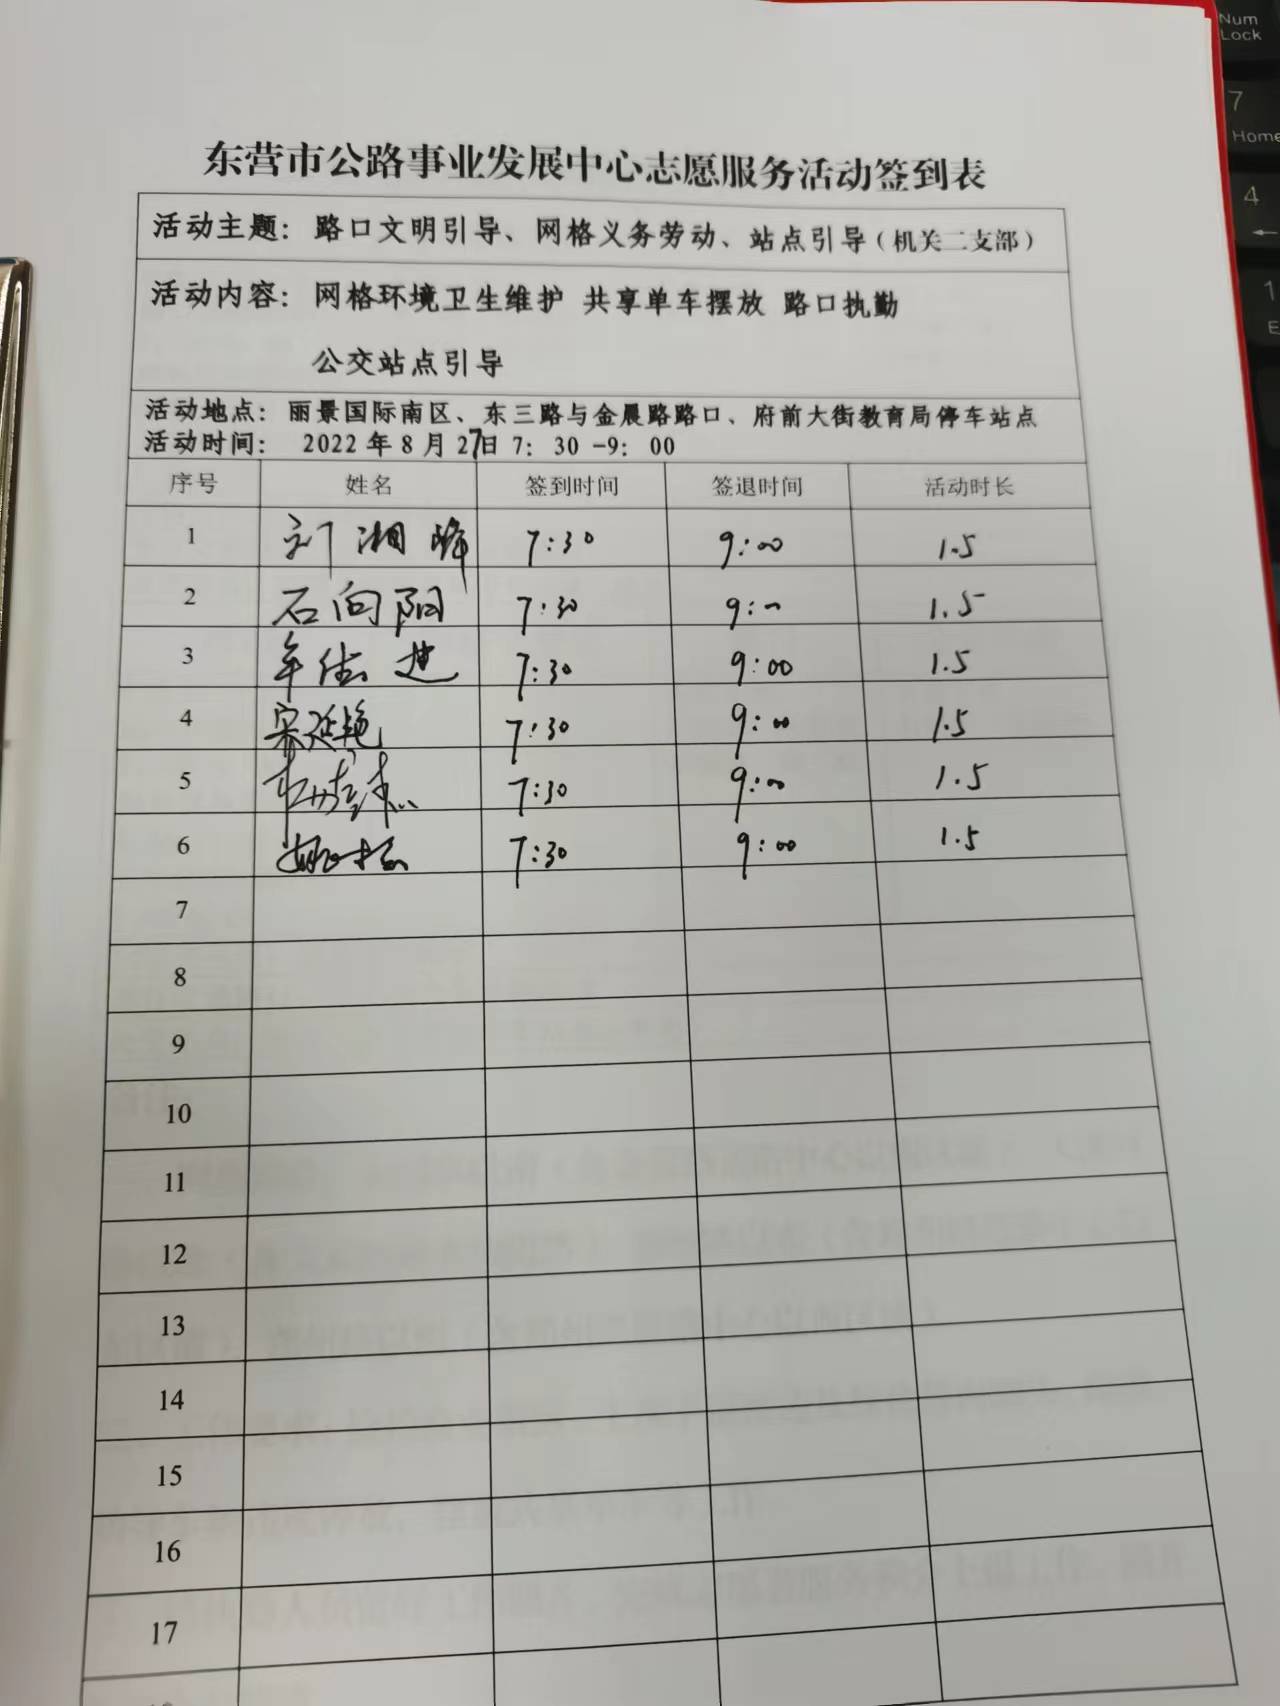 东营市公路事业发展中心志愿服务活动签到表
活动主题：路口文明引导、网格义务劳动、站点引导（机关二支部）
活动内容：网格环境卫生维护 共享单车摆放 路口执勤
公交站点引导
活动地点：丽景国际南区、东三路与金晨路路口、府前大街教育局停车站点
活动时间： 2022年8月27日7：30-9：00
序号 姓名 签到时间 签退时间 活动时长
1 刘湘峰 7:30 9:00 1.5
2 石向阳 7:30 9:00 1.5
3 7:30 9:00 1.5
4 宋延艳 7:30 9:00 1.5
5 7:30 9:00 1.5
6 7:30 9:00 1.5
7
8
9
10
11
12
13
14
15
16
17
Num
Lock
7
Home
4
←